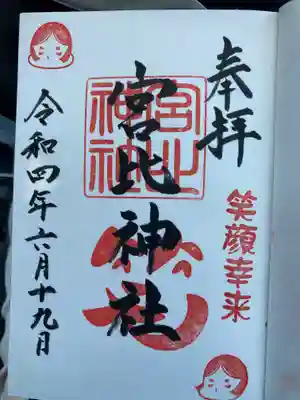 奉拝
笑顔幸来
宮比神社
宮比
神社
令和四年六月十九日